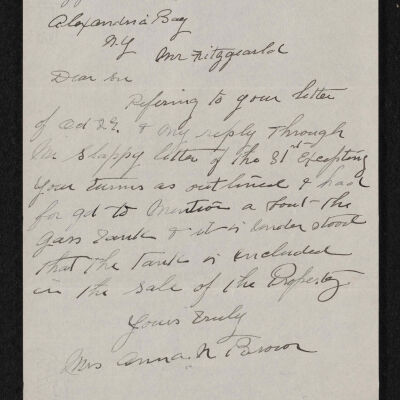 Alexandria Bay
N.Y
Mr Fitzgearld
Dear Sir
Refering to your letter
of Oct 29. & my reply through
Mr Slappy letter of the 31st Excepting
your turms as outlined & had
for got to mention a bout the
gass Tank & it is under stood
that the Tank is encluded
in the Sale of the Property
Yours truly
Mrs Anna N Brown